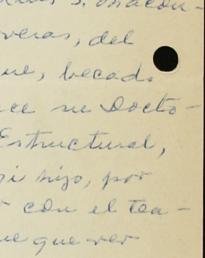 veras, del
ue, becado
ce su Docto-
Estructural,
hizo, por
r con el tea-
ue que ver